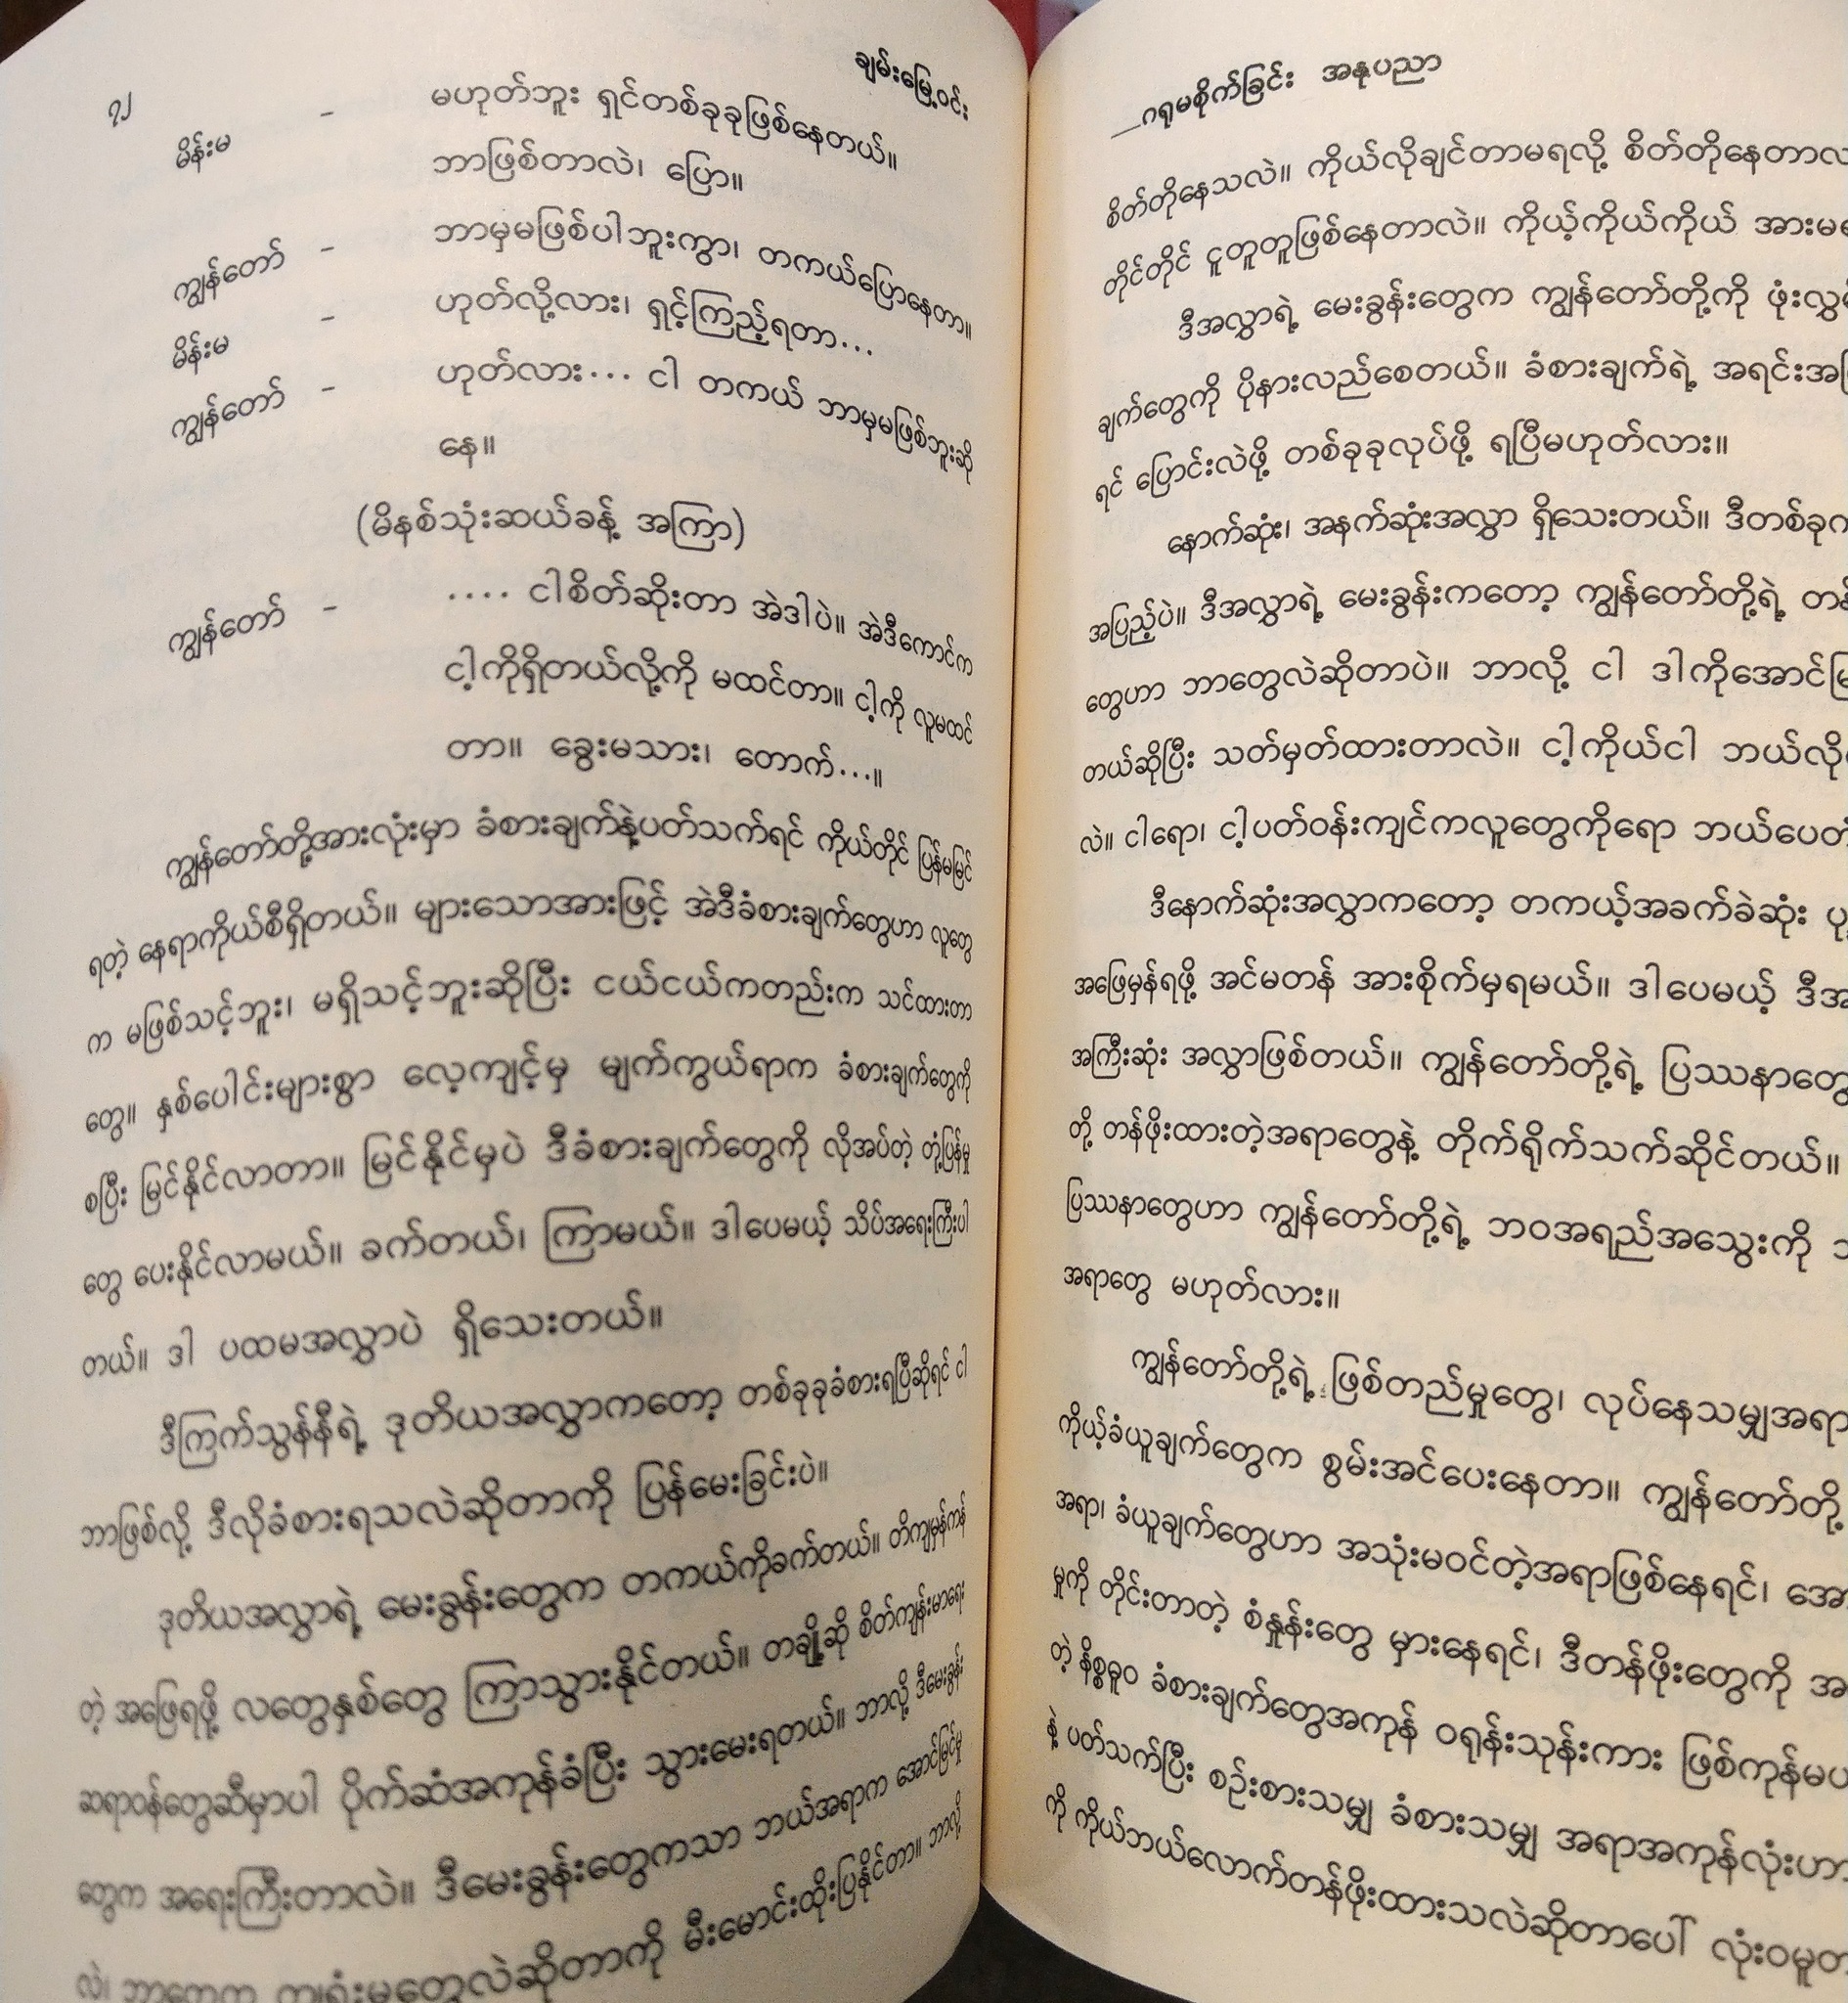 ၇၂
ချမ်းမြေ့ဝင်း
မိန်းမ - မဟုတ်ဘူး ရှင်တစ်ခုခုဖြစ်နေတယ်။
ဘာဖြစ်တာလဲ၊ ပြော။
ကျွန်တော် - ဘာမှမဖြစ်ပါဘူးကွာ၊ တကယ်ပြောနေတာ။
မိန်းမ - ဟုတ်လို့လား၊ ရှင့်ကြည့်ရတာ...
ကျွန်တော် - ဟုတ်လား... ငါ တကယ် ဘာမှမဖြစ်ဘူးဆို
နေ။
(မိနစ်သုံးဆယ်ခန့် အကြာ)
ကျွန်တော် - .... ငါစိတ်ဆိုးတာ အဲဒါပဲ။ အဲဒီကောင်က
ငါ့ကိုရှိတယ်လို့ကို မထင်တာ။ ငါ့ကို လူမထင်
တာ။ ခွေးမသား၊ တောက်...။
ကျွန်တော်တို့အားလုံးမှာ ခံစားချက်နဲ့ပတ်သက်ရင် ကိုယ်တိုင် ပြန်မမြင်
ရတဲ့ နေရာကိုယ်စီရှိတယ်။ များသောအားဖြင့် အဲဒီခံစားချက်တွေဟာ လူတွေ
က မဖြစ်သင့်ဘူး၊ မရှိသင့်ဘူးဆိုပြီး ငယ်ငယ်ကတည်းက သင်ထားတာ
တွေ။ နှစ်ပေါင်းများစွာ လေ့ကျင့်မှ မျက်ကွယ်ရာက ခံစားချက်တွေကို
စပြီး မြင်နိုင်လာတာ။ မြင်နိုင်မှပဲ ဒီခံစားချက်တွေကို လိုအပ်တဲ့ တုံ့ပြန်မှု
တွေ ပေးနိုင်လာမယ်။ ခက်တယ်၊ ကြာမယ်။ ဒါပေမယ့် သိပ်အရေးကြီးပါ
တယ်။ ဒါ ပထမအလွှာပဲ ရှိသေးတယ်။
ဒီကြက်သွန်နီရဲ့ ဒုတိယအလွှာကတော့ တစ်ခုခုခံစားရပြီဆိုရင် ငါ
ဘာဖြစ်လို့ ဒီလိုခံစားရသလဲဆိုတာကို ပြန်မေးခြင်းပဲ။
ဒုတိယအလွှာရဲ့ မေးခွန်းတွေက တကယ်ကိုခက်တယ်။ တိကျမှန်ကန်
တဲ့ အဖြေရဖို့ လတွေနှစ်တွေ ကြာသွားနိုင်တယ်။ တချို့ဆို စိတ်ကျန်းမာရေး
ဆရာဝန်တွေဆီမှာပါ ပိုက်ဆံအကုန်ခံပြီး သွားမေးရတယ်။ ဘာလို့ ဒီမေးခွန်း
တွေက အရေးကြီးတာလဲ။ ဒီမေးခွန်းတွေကသာ ဘယ်အရာက အောင်မြင်မှု
လဲ၊ ဘာတွေက ကျရှုံးမှုတွေလဲဆိုတာကို မီးမောင်းထိုးပြနိုင်တာ။ ဘာလို့
ဂရုမစိုက်ခြင်း အနုပညာ
စိတ်တိုနေသလဲ။ ကိုယ်လိုချင်တာမရလို့ စိတ်တိုနေတာလ
တိုင်တိုင် ငူတူတူဖြစ်နေတာလဲ။ ကိုယ့်ကိုယ်ကိုယ် အားမရ
ဒီအလွှာရဲ့ မေးခွန်းတွေက ကျွန်တော်တို့ကို ဖုံးလွှမ်
ချက်တွေကို ပိုနားလည်စေတယ်။ ခံစားချက်ရဲ့ အရင်းအမြ
ရင် ပြောင်းလဲဖို့ တစ်ခုခုလုပ်ဖို့ ရပြီမဟုတ်လား။
နောက်ဆုံး၊ အနက်ဆုံးအလွှာ ရှိသေးတယ်။ ဒီတစ်ခုက
အပြည့်ပဲ။ ဒီအလွှာရဲ့ မေးခွန်းကတော့ ကျွန်တော်တို့ရဲ့ တန်
တွေဟာ ဘာတွေလဲဆိုတာပဲ။ ဘာလို့ ငါ ဒါကိုအောင်မြ
တယ်ဆိုပြီး သတ်မှတ်ထားတာလဲ။ ငါ့ကိုယ်ငါ ဘယ်လို
လဲ။ ငါရော၊ ငါ့ပတ်ဝန်းကျင်ကလူတွေကိုရော ဘယ်ပေတံ
ဒီနောက်ဆုံးအလွှာကတော့ တကယ့်အခက်ခဲဆုံး
အဖြေမှန်ရဖို့ အင်မတန် အားစိုက်မှရမယ်။ ဒါပေမယ့် ဒီအ
အကြီးဆုံး အလွှာဖြစ်တယ်။ ကျွန်တော်တို့ရဲ့ ပြဿနာတွေ
တို့ တန်ဖိုးထားတဲ့အရာတွေနဲ့ တိုက်ရိုက်သက်ဆိုင်တယ်။
ပြဿနာတွေဟာ ကျွန်တော်တို့ရဲ့ ဘဝအရည်အသွေးကို
အရာတွေ မဟုတ်လား။
ကျွန်တော်တို့ရဲ့ ဖြစ်တည်မှုတွေ၊ လုပ်နေသမျှအရာ
ကိုယ့်ခံယူချက်တွေက စွမ်းအင်ပေးနေတာ။ ကျွန်တော်တို့
အရာ၊ ခံယူချက်တွေဟာ အသုံးမဝင်တဲ့အရာဖြစ်နေရင်၊ အော
မှုကို တိုင်းတာတဲ့ စံနှုန်းတွေ မှားနေရင်၊ ဒီတန်ဖိုးတွေကို အ
တဲ့ နိစ္စဓူဝ ခံစားချက်တွေအကုန် ဝရုန်းသုန်းကား ဖြစ်ကုန်မပ
နဲ့ ပတ်သက်ပြီး စဉ်းစားသမျှ ခံစားသမျှ အရာအကုန်လုံးဟာ
ကို ကိုယ်ဘယ်လောက်တန်ဖိုးထားသလဲဆိုတာပေါ် လုံးဝမူတ